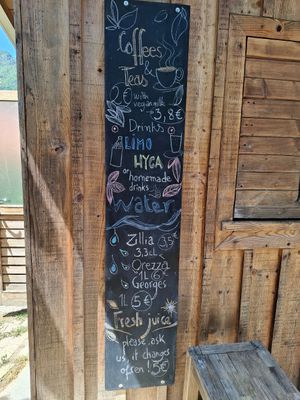 Coffees
&
Teas
2€ with
vegan milk
3,8€
Drinks
LIMO
HYCA
or
homemade
drinks
Water
Zilia 3,5€
33cl
Orezza
1L 6€
Georges
1L 5€
Fresh juice
please, ask
us, it changes
often! 5€